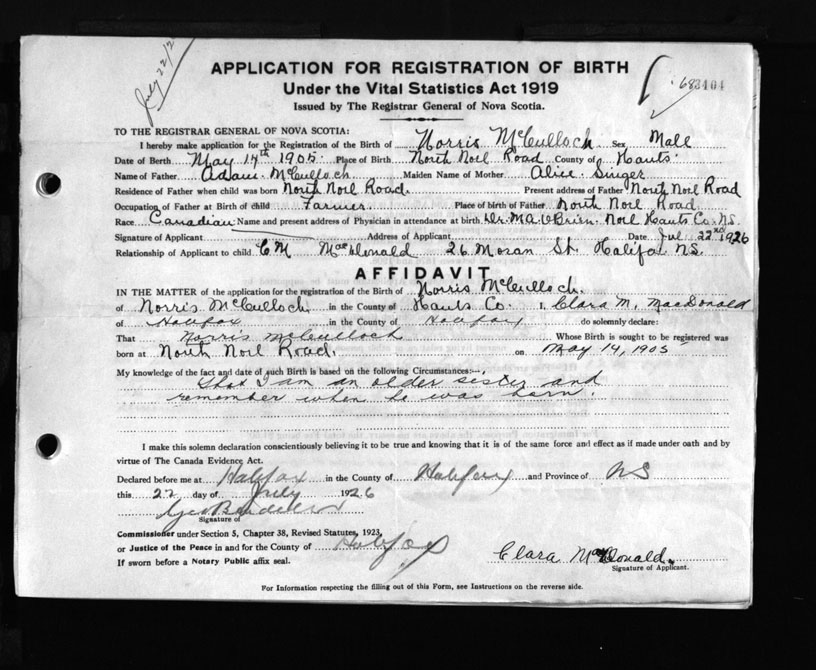 July 22/2
APPLICATION FOR REGISTRATION OF BIRTH
683404
Under the Vital Statistics Act 1919
Issued by The Registrar General of Nova Scotia.
TO THE REGISTRAR GENERAL OF NOVA SCOTIA:
I hereby make application for the Registration of the Birth of Norris McCulloch Sex Male
Date of Birth May 14th 1905 Place of Birth North Noel Road County of Hants
Name of Father Adam McCulloch Maiden Name of Mother Alice Singer
Residence of Father when child was born North Noel Road Present address of Father North Noel Road
Occupation of Father at Birth of child Farmer Place of birth of Father North Noel Road
Race Canadian Name and present address of Physician in attendance at birth Dr. M.A. O'Brien Noel Hants Co. N.S.
Signature of Applicant Address of Applicant Date Jul 22nd 1926
Relationship of Applicant to child C M MacDonald 26 Moran St. Halifax N.S.
AFFIDAVIT
IN THE MATTER of the application for the registration of the Birth of Norris McCulloch
of Norris McCulloch in the County of Hants Co. I, Clara M. MacDonald
of Halifax in the County of Halifax do solemnly declare:
That Norris McCulloch Whose Birth is sought to be registered was
born at North Noel Road. on May 14, 1905
My knowledge of the fact and date of such Birth is based on the following Circumstances:—,
That I am an older sister and
remember when he was born.
I make this solemn declaration conscientiously believing it to be true and knowing that it is of the same force and effect as if made under oath and by
virtue of The Canada Evidence Act.
Declared before me at Halifax in the County of Halifax and Province of NS
this 22 day of July 1926
Geo
Signature of
Commissioner under Section 5, Chapter 38, Revised Statutes, 1923,
or Justice of the Peace in and for the County of Halifax
If sworn before a Notary Public affix seal.
Clara McDonald.
Signature of Applicant.
For Information respecting the filling out of this Form, see Instructions on the reverse side.